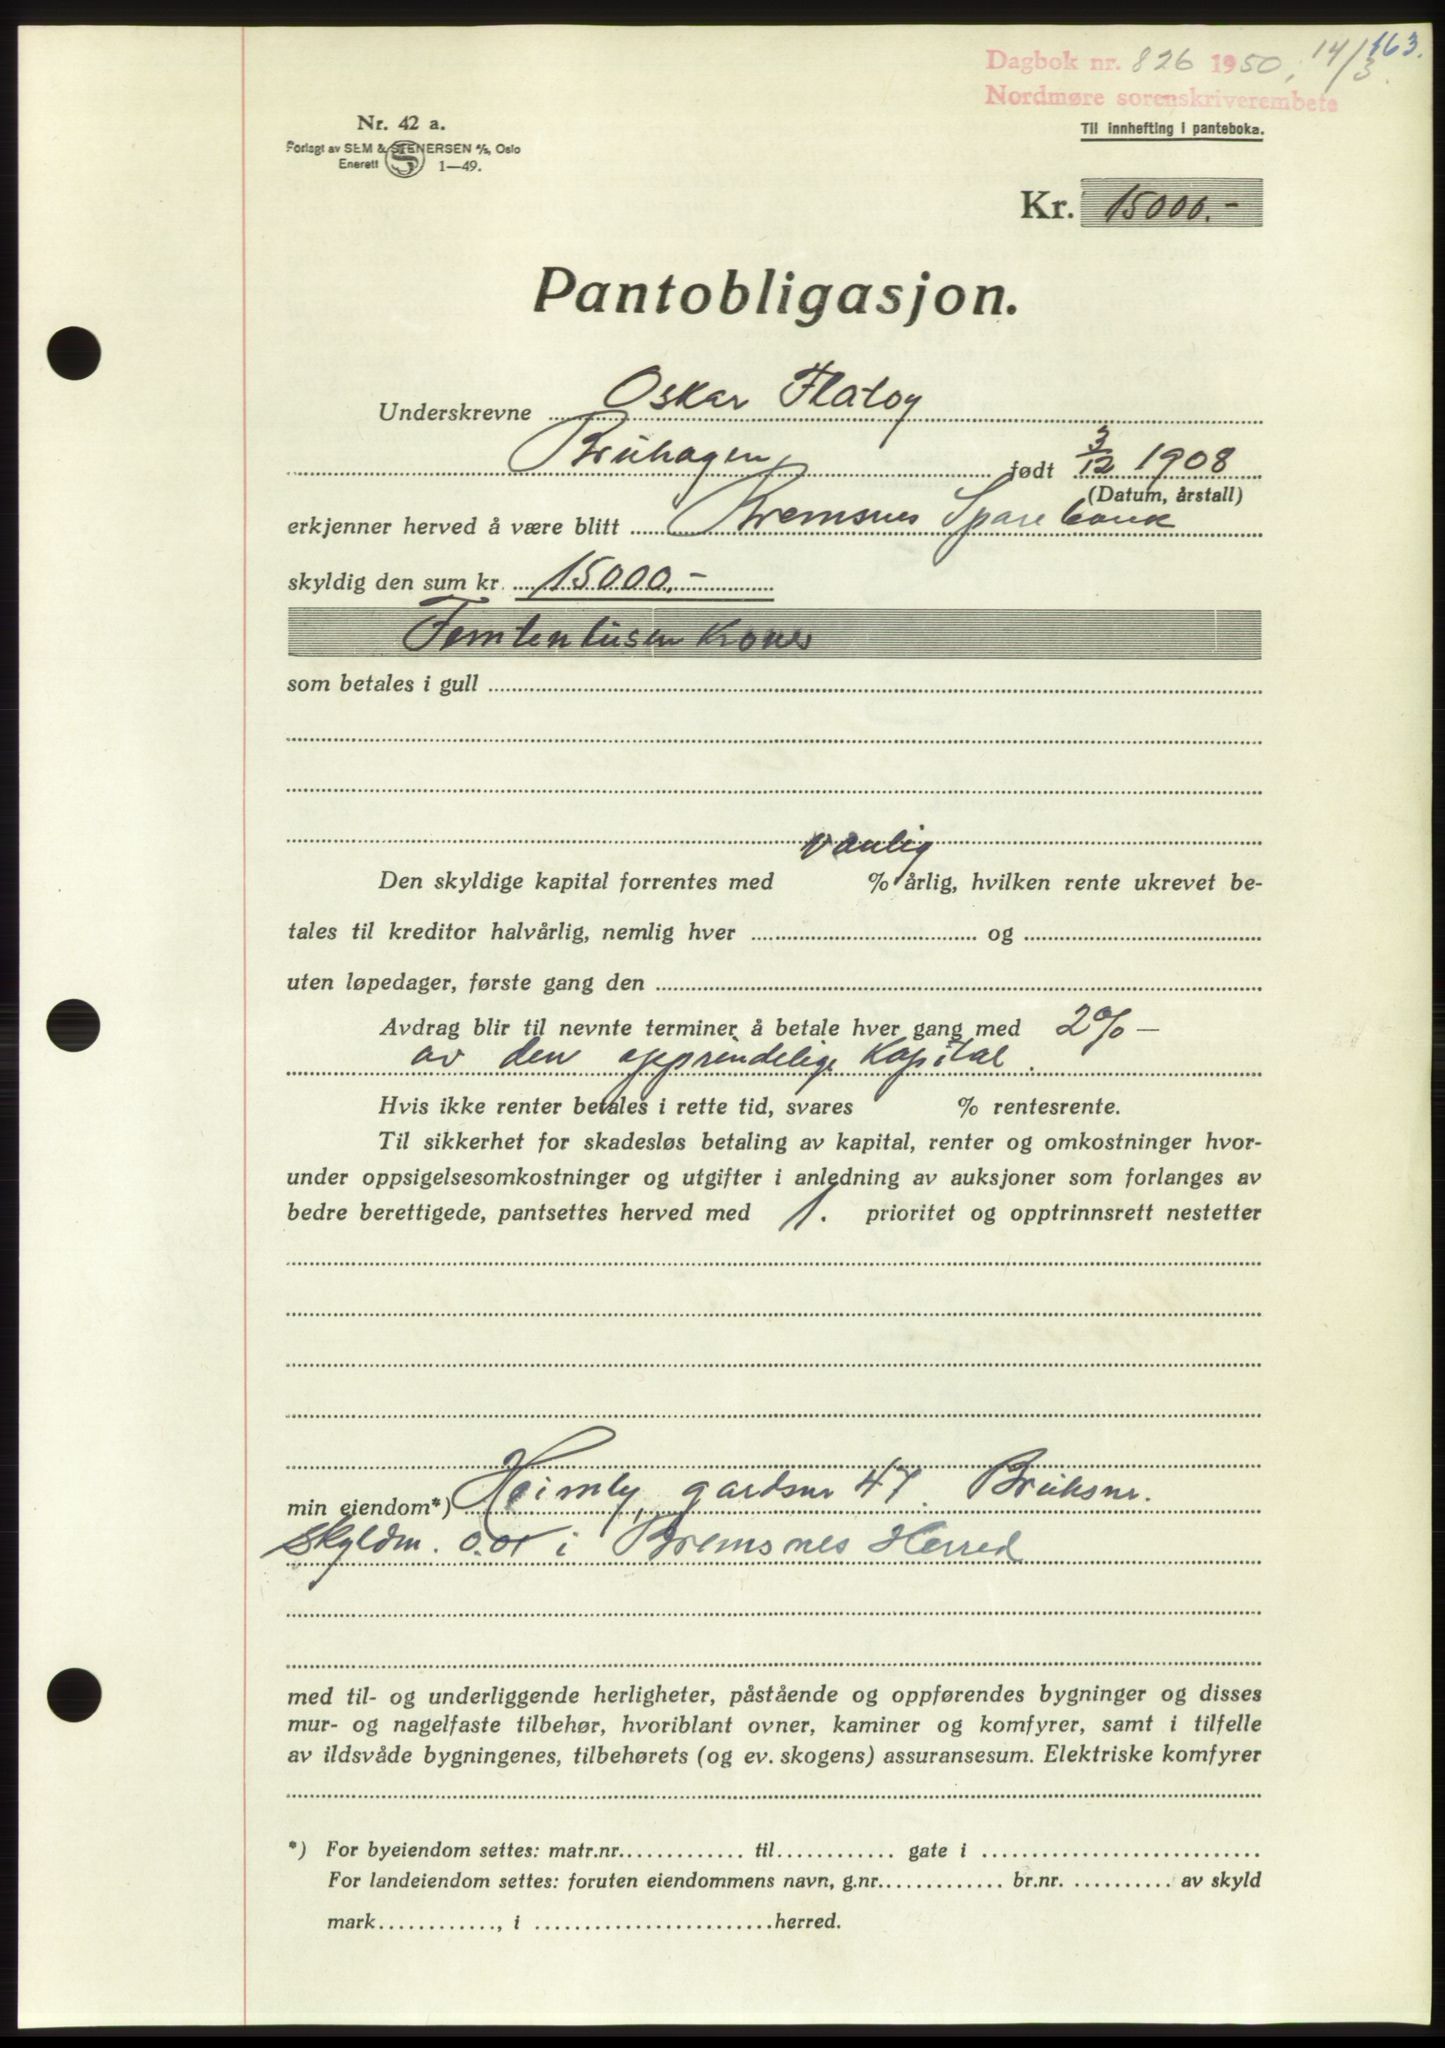 163.
Dagbok nr. 826 1950, 14/3.
Nordmøre sorenskriverembete
Nr. 42 a.
Til innhefting i panteboka.
Forlagt av SEM & STENERSEN A/S, Oslo
Enerett S 1—49.
Kr. 15000.-
Pantobligasjon.
Underskrevne Oskar Flatøy
Bruhagen, født 3/12 1908
(Datum, årstall)
erkjenner herved å være blitt Bremsnes Sparebank
skyldig den sum kr. 15000.-
Femtentusen Kroner
som betales i gull
vanlig
Den skyldige kapital forrentes med % årlig, hvilken rente ukrevet be-
tales til kreditor halvårlig, nemlig hver og
uten løpedager, første gang den
Avdrag blir til nevnte terminer å betale hver gang med 2% —
av den opprindelige Kapital.
Hvis ikke renter betales i rette tid, svares % rentesrente.
Til sikkerhet for skadesløs betaling av kapital, renter og omkostninger hvor-
under oppsigelsesomkostninger og utgifter i anledning av auksjoner som forlanges av
bedre berettigede, pantsettes herved med 1. prioritet og opptrinnsrett nestetter
min eiendom*) Heimly, gardsnr 47. Bruksnr.
skyldm. 0.01 i Bremsnes Herred
med til- og underliggende herligheter, påstående og oppførendes bygninger og disses
mur- og nagelfaste tilbehør, hvoriblant ovner, kaminer og komfyrer, samt i tilfelle
av ildsvåde bygningenes, tilbehørets (og ev. skogens) assuransesum. Elektriske komfyrer
*) For byeiendom settes: matr.nr. til gate i
For landeiendom settes: foruten eiendommens navn, g.nr. br.nr. av skyld
mark , i herred.